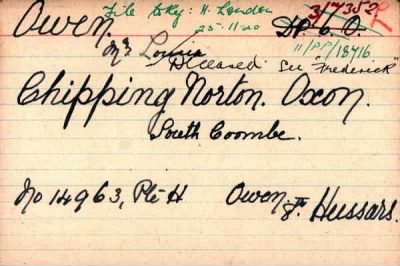 Owen. File Sky: N. London 317352 R
25-11-20 DP. 6. O.
Mrs Louisa 11/PP/18716
Deceased See "Frederick"
Chipping Norton. Oxon.
South Coombe.
No 14963, Pte H Owen. 8th Hussars.